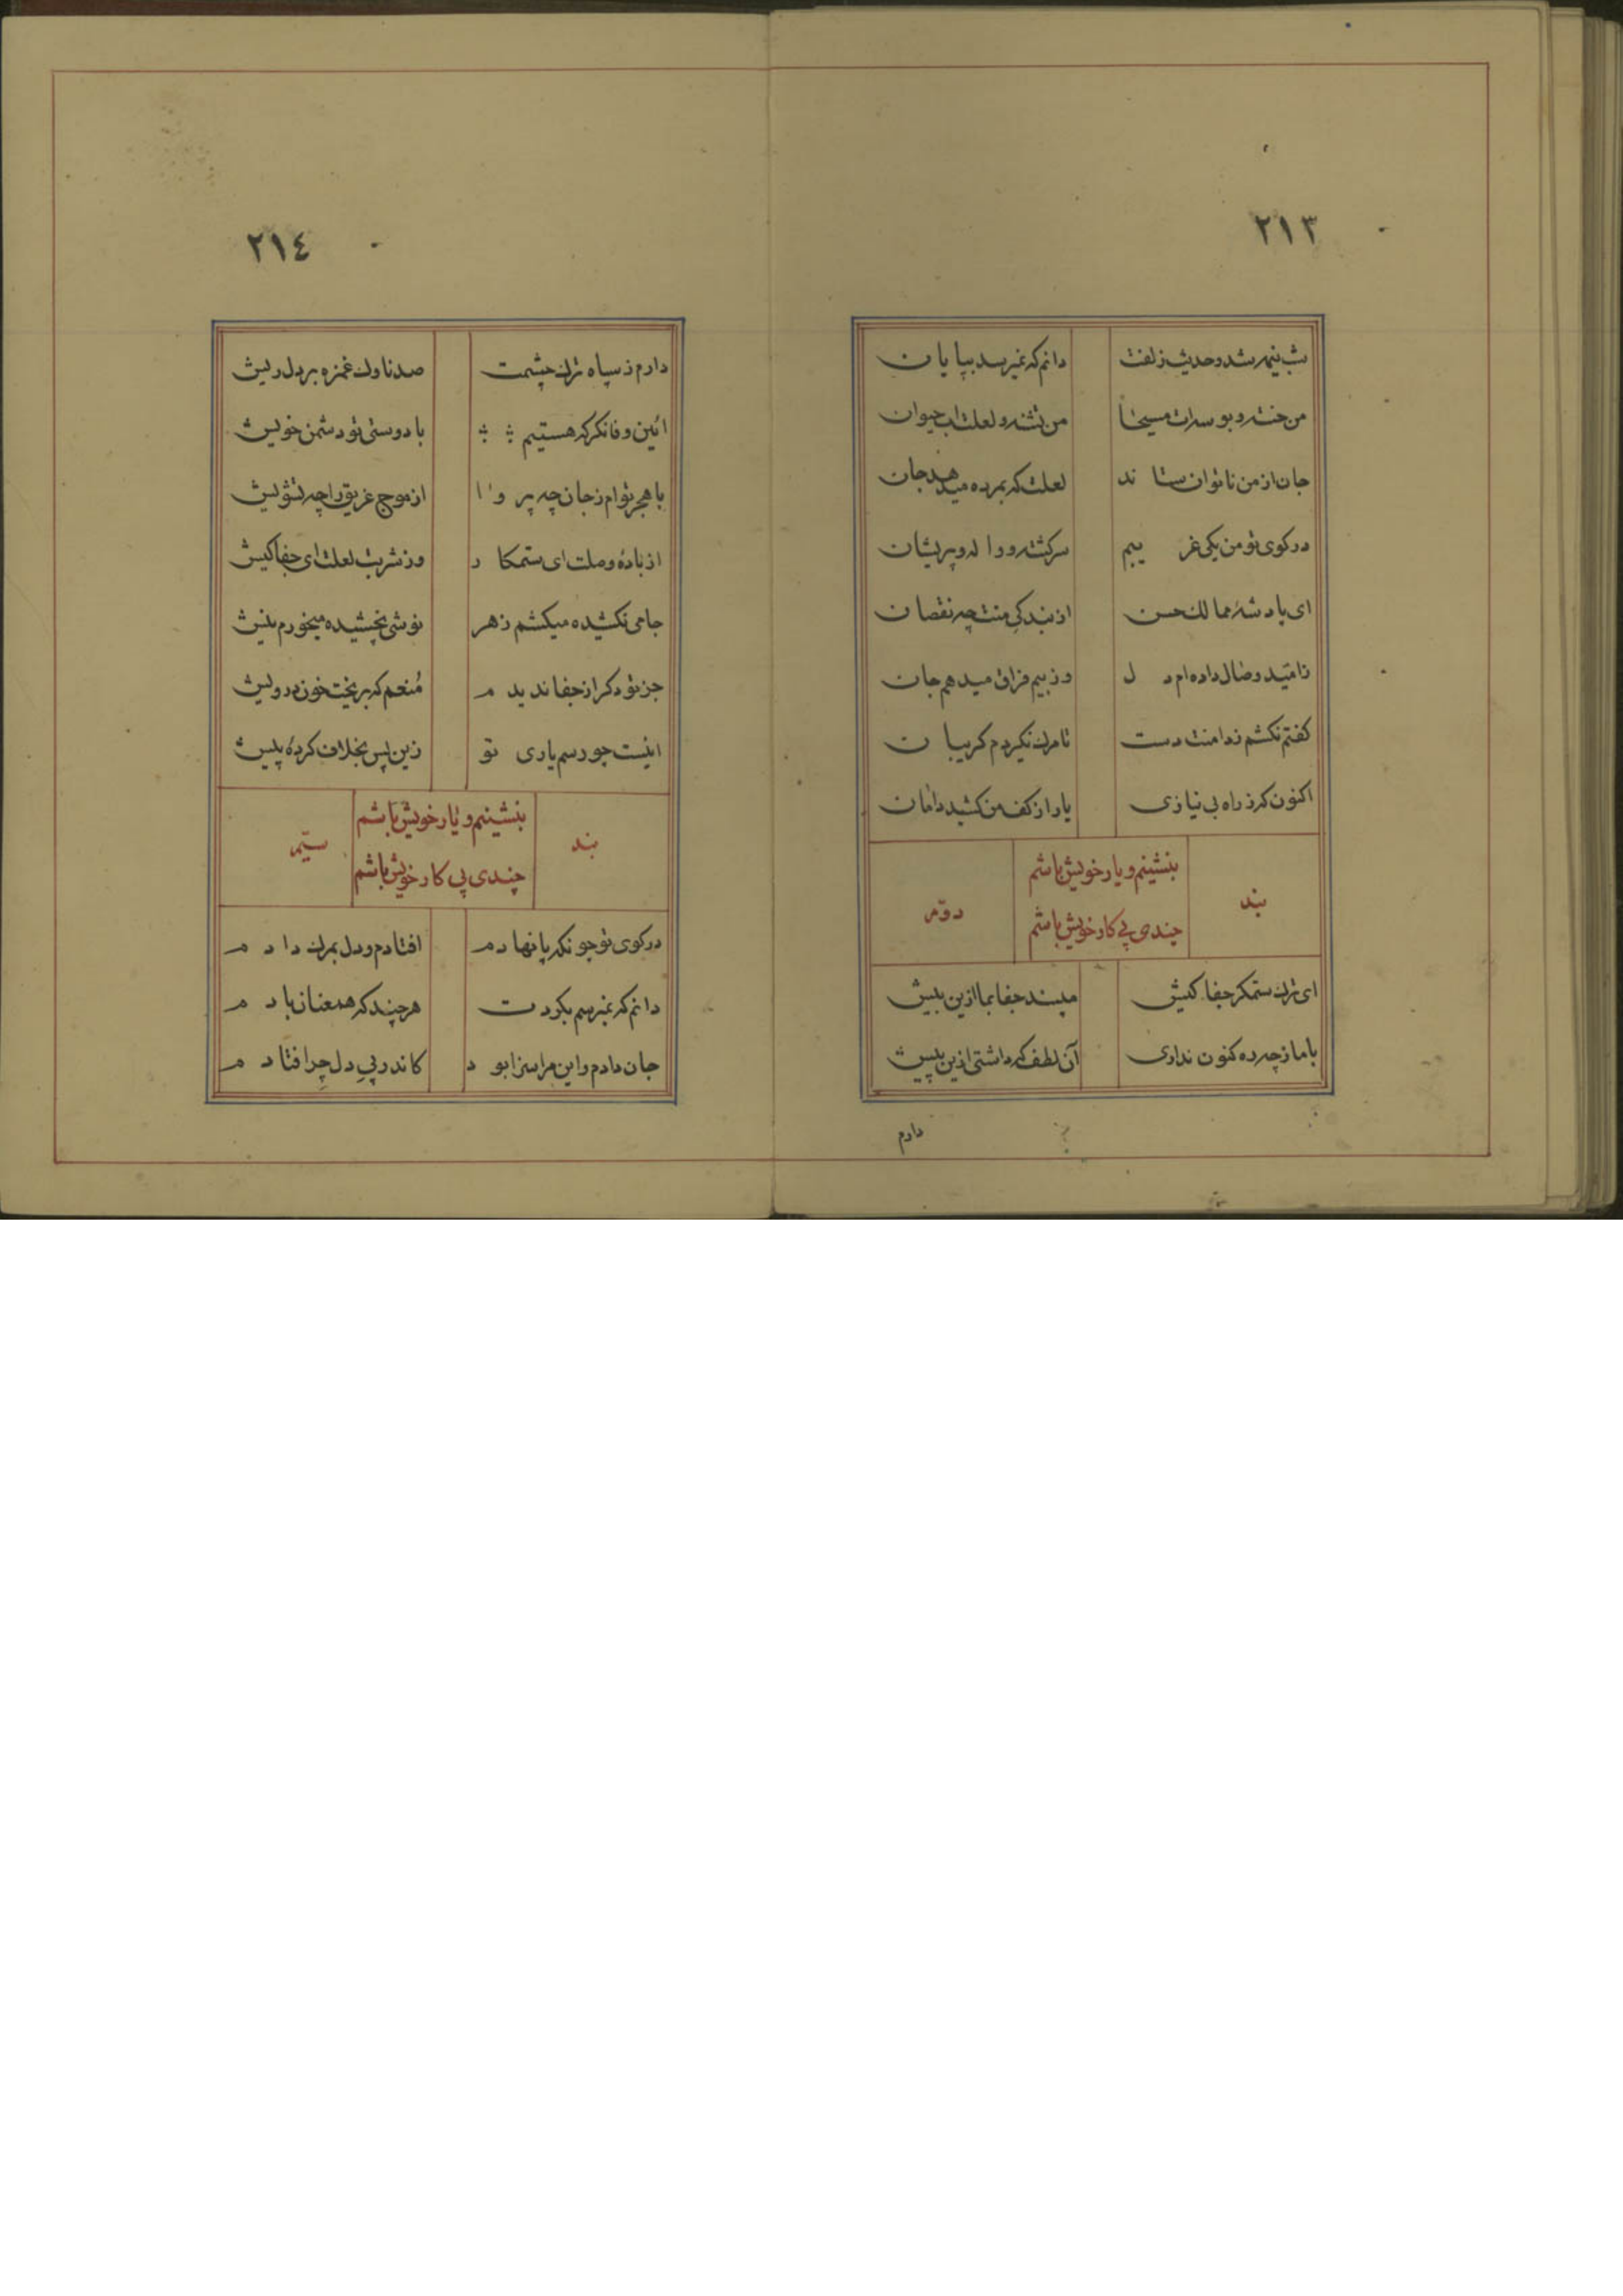 ٢١٣
شب نیمه شد و حدیث زلفت دانم که نمیرسد بپایان
من خسته و بوسه‌ات مسیحا من تشنه و لعلت اب حیوان
جان از من ناتوان ستاند لعلت که بمرده میدهد جان
در کوی تو من یکی غریبم سرکشته و واله و پریشان
ای پادشه ممالك حسن از بندکی منت چه نقصان
نا امّید وصال داده‌ام دل وز بیم فراق میدهم جان
کفتم نکشم ز دامنت دست تا مرك نکیردم کریبان
اکنون که ز راه بی نیازی یار از کف من کشید دامان
بنشینم و یار خویش باشم
بند دوّم
چندی پی کار خویش باشم
ای ترك ستمکر جفا کیش مپسند جفا بما ازین بیش
با ما ز چه ره کنون نداری آن لطف که داشتی ازین پیش
دارم
٢١٤
دارم ز سپاه ترك چشمت صد ناوك غمزه بر دل ریش
ائین وفا نکر که هستیم با دوستی تو دشمن خویش
با هجر توام ز جان چه پروا از موج غریق را چه تشویش
از بادهٔ وصلت ای ستمکار وز شربت لعلت ای جفا کیش
جامی نکشیده میکشم زهر نوشی نچشیده میخورم نیش
جز تو دکر از جفا ندیدم مُنعم که بریخت خون درویش
اینست چو رسم یاری تو زین پس بخلاف کردهٔ پیش
بنشینم و یار خویش باشم
بند سیّم
چندی پی کار خویش باشم
در کوی تو چونکه پا نهادم افتادم و دل بمرك دادم
دانم که نمیرسم بکردت هر چند که همعنان بادم
جان دادم و این مرا سزا بود کاندر پیِ دل چرا فتادم